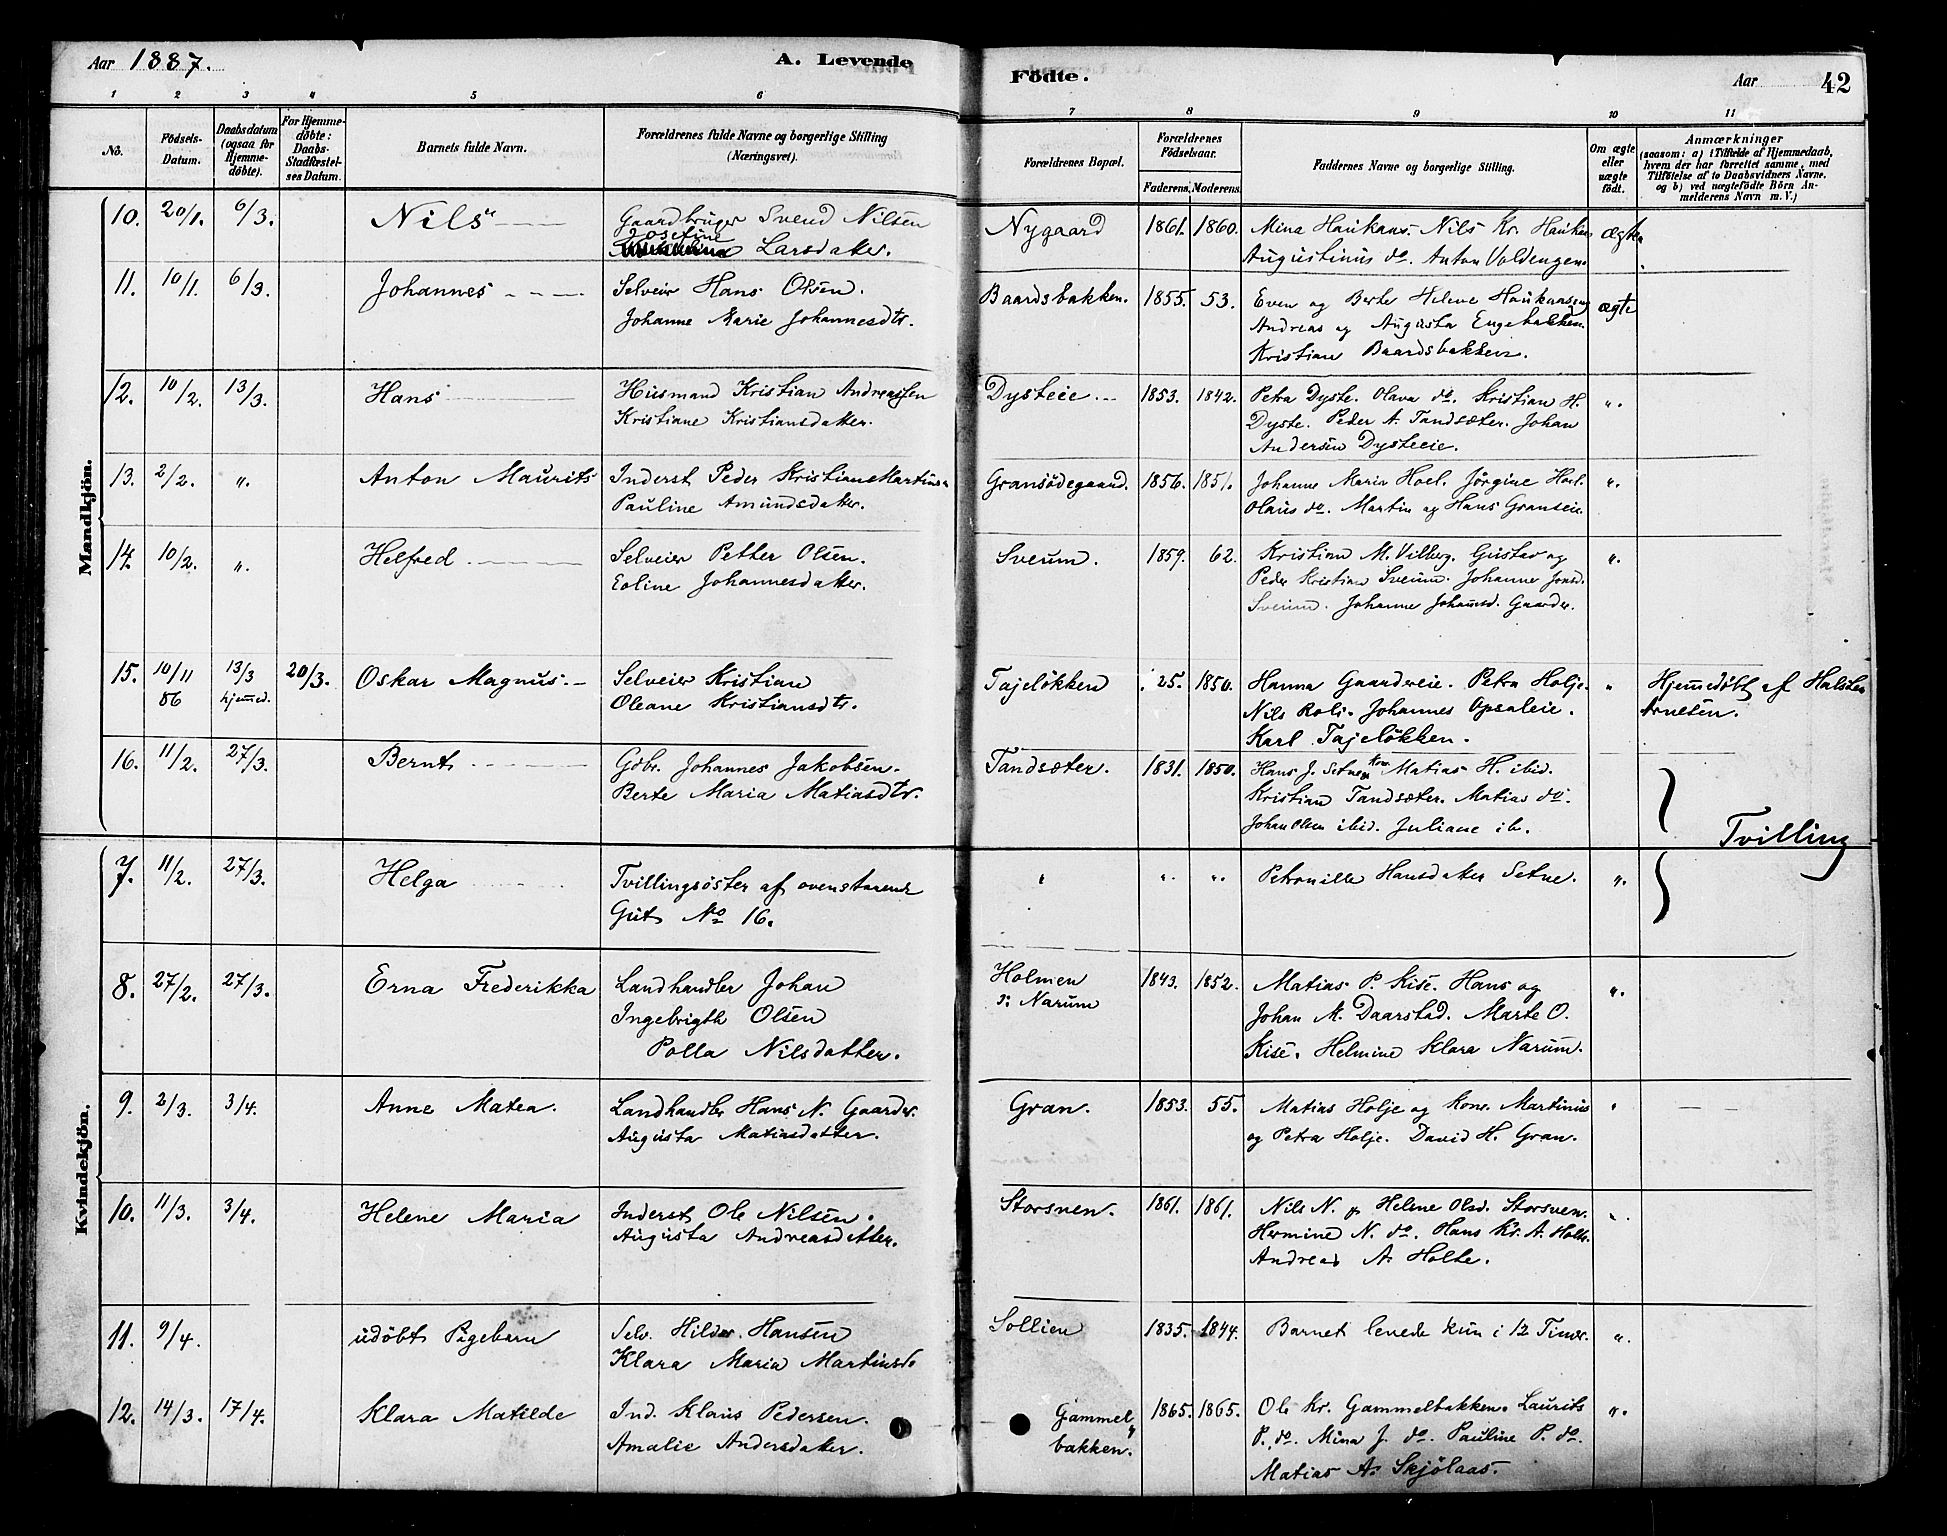 Aar 1887. A. Levende Födte. Aar 42
1 2 3 4 5 6 7 8 9 10 11
No. Födsels-Datum. Daabsdatum (ogsaa for Hjemmedöbte). For Hjemmedöbte: Daabs-Stadfæstelses Datum. Barnets fulde Navn. Forældrenes fulde Navne og borgerlige Stilling (Næringsvei). Forældrenes Bopæl. Forældrenes Födselsaar. Faderens. Moderens. Faddernes Navne og borgerlige Stilling. Om ægte eller uægte födt. Anmærkninger (saasom: a) i Tilfælde af Hjemmedaab, hvem der har forrettet samme, med Tilföielse af to Daabsvidners Navne, og b) ved uægtefödte Börn Anmelderens Navn m. V.)
Mandkjön.
10. 20/1. 6/3. Nils Gaardbruger Svend Nilsen Nygaard 1861. 1860. Mina Haukaas. Nils Kr. Haukaas ægte
Josefine Larsdater. Augustinus do. Anton Voldengen.
11. 10/1. 6/3. Johannes Selveier Hans Olsen. Baardsbakken. 1855. 53. Even og Berte Helene Haukaasen ægte
Johanne Marie Johannesdtr. Andreas og Augusta Engebakken.
Kristian Baardsbakken.
12. 10/2. 13/3. Hans Husmand Kristian Andreassen Dysteie 1853. 1842. Petra Dyste. Olava do. Kristian H. "
Kristiane Kristiansdatter. Dyste. Peder A. Tandsæter. Johan
Andersen Dysteeie.
13. 2/2. " Anton Maurits Inderst Peder Kristian Martinsen Gransödegaard. 1856. 1851. Johanne Maria Hoel. Jörgine Hoel. "
Pauline Amundsdater. Olaus do. Martin og Hans Granseie.
14. 10/2. " Helfred Selveier Petter Olsen. Sveum. 1859. 62. Kristian M. Vilberg. Gustav og "
Eoline Johannesdater. Peder Kristian Sveum. Johanne Jonsd.
Sveum. Johanne Johansd. Gaarder.
15. 10/11 86 13/3 hjemmed. 20/3. Oskar Magnus Selveier Kristian Tajelökken 25. 1850. Hanna Gaardereie. Petra Holje. " Hjemmedöbt af Halsten
Oleane Kristiansdtr. Nils Roli. Johannes Opsaleie. Arnesen.
Karl Tajelökken.
16. 11/2. 27/3. Bernt Gdbr. Johannes Jakobsen. Tandsæter. 1831. 1850. Hans J. Setne Kone Matias H. ibid.
Berte Maria Matiasdtr. Kristian Tandsæter. Matias do.
Johan Olsen ibid. Juliane ib. Tvilling
Kvindekjön.
7. 11/2. 27/3. Helga Tvillingsöster af ovenstaaende " " " Petronille Hansdater Setne. "
Gut No 16.
8. 27/2. 27/3. Erna Frederikka Landhandler Johan Holmen 1843. 1852. Matias P. Kise. Hans og "
Ingebrigth Olsen Narum Johan M. Daarstad. Marte O.
Polla Nilsdatter. Kise. Helmine Klara Narum.
9. 2/3. 3/4. Anne Matea. Landhandler Hans N. Gaarder. Gran. 1853. 55. Matias Holje og Kone. Martinus "
Augusta Matiasdatter. og Petra Holje. David H. Gran.
10. 11/3. 3/4. Helene Maria Inderst Ole Nilsen. Storsven. 1861. 1861. Nils N. og Helene Olsd. Storsven. "
Augusta Andreasdatter. Hermine N. do. Hans Kr. A. Holte.
Andreas A. Holte.
11. 9/4. udöbt Pigebarn Selv. Hilder Hansen Sollien 1835. 1844. Barnet levede kun i 12 Timer. "
Klara Maria Martinsd.
12. 14/3. 17/4. Klara Matilde Ind. Klaus Pedersen. Gammel 1865. 1865. Ole Kr. Gammelbakken. Laurits "
Amalie Andersdater. bakken. P. do. Mina J. do. Pauline P. do.
Matias A. Skjölaas.